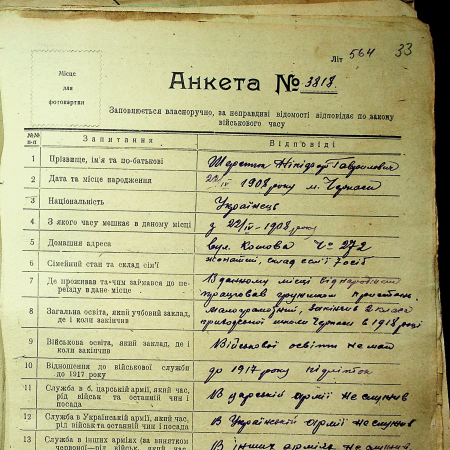 Літ 564 33
Місце
для
фотокартки
Анкета № 3818.
Заповнюється власноручно, за неправдиві відомості відповідає по закону
військового часу
№№ п-п Запитання Відповіді
1 Прізвище, ім'я та по-батькові Нікіфор Гаврилович
2 Дата та місце народження 22/IV 1908 року м. Черкаси
3 Національність Українець
4 З якого часу мешкає в даному місці з 22/IV-1908 року
5 Домашня адреса вул. № 272
6 Сімейний стан та склад сім'ї жонатий, склад сем'ї 7 осіб
7 Де проживав та чим займався до переїзду в дане місце В данному місці від народження
працював
8 Загальна освіта, який учбовий заклад, де і коли закінчив Малограмотний, закінчив 2 класа
приходської школи Черкаси в 1918 році
9 Військова освіта, який заклад, де і коли закінчив Військової освіти не маю
10 Відношення до військової служби до 1917 року до 1917 року підліток
11 Служба в б. царській армії, який час, рід військ та останній чин і посада В царській армії не служив
12 Служба в Українській армії, який час, рід військ та останній чин і посада В Українській армії не служив
13 Служба в інших арміях (за винятком В інших арміях не служив